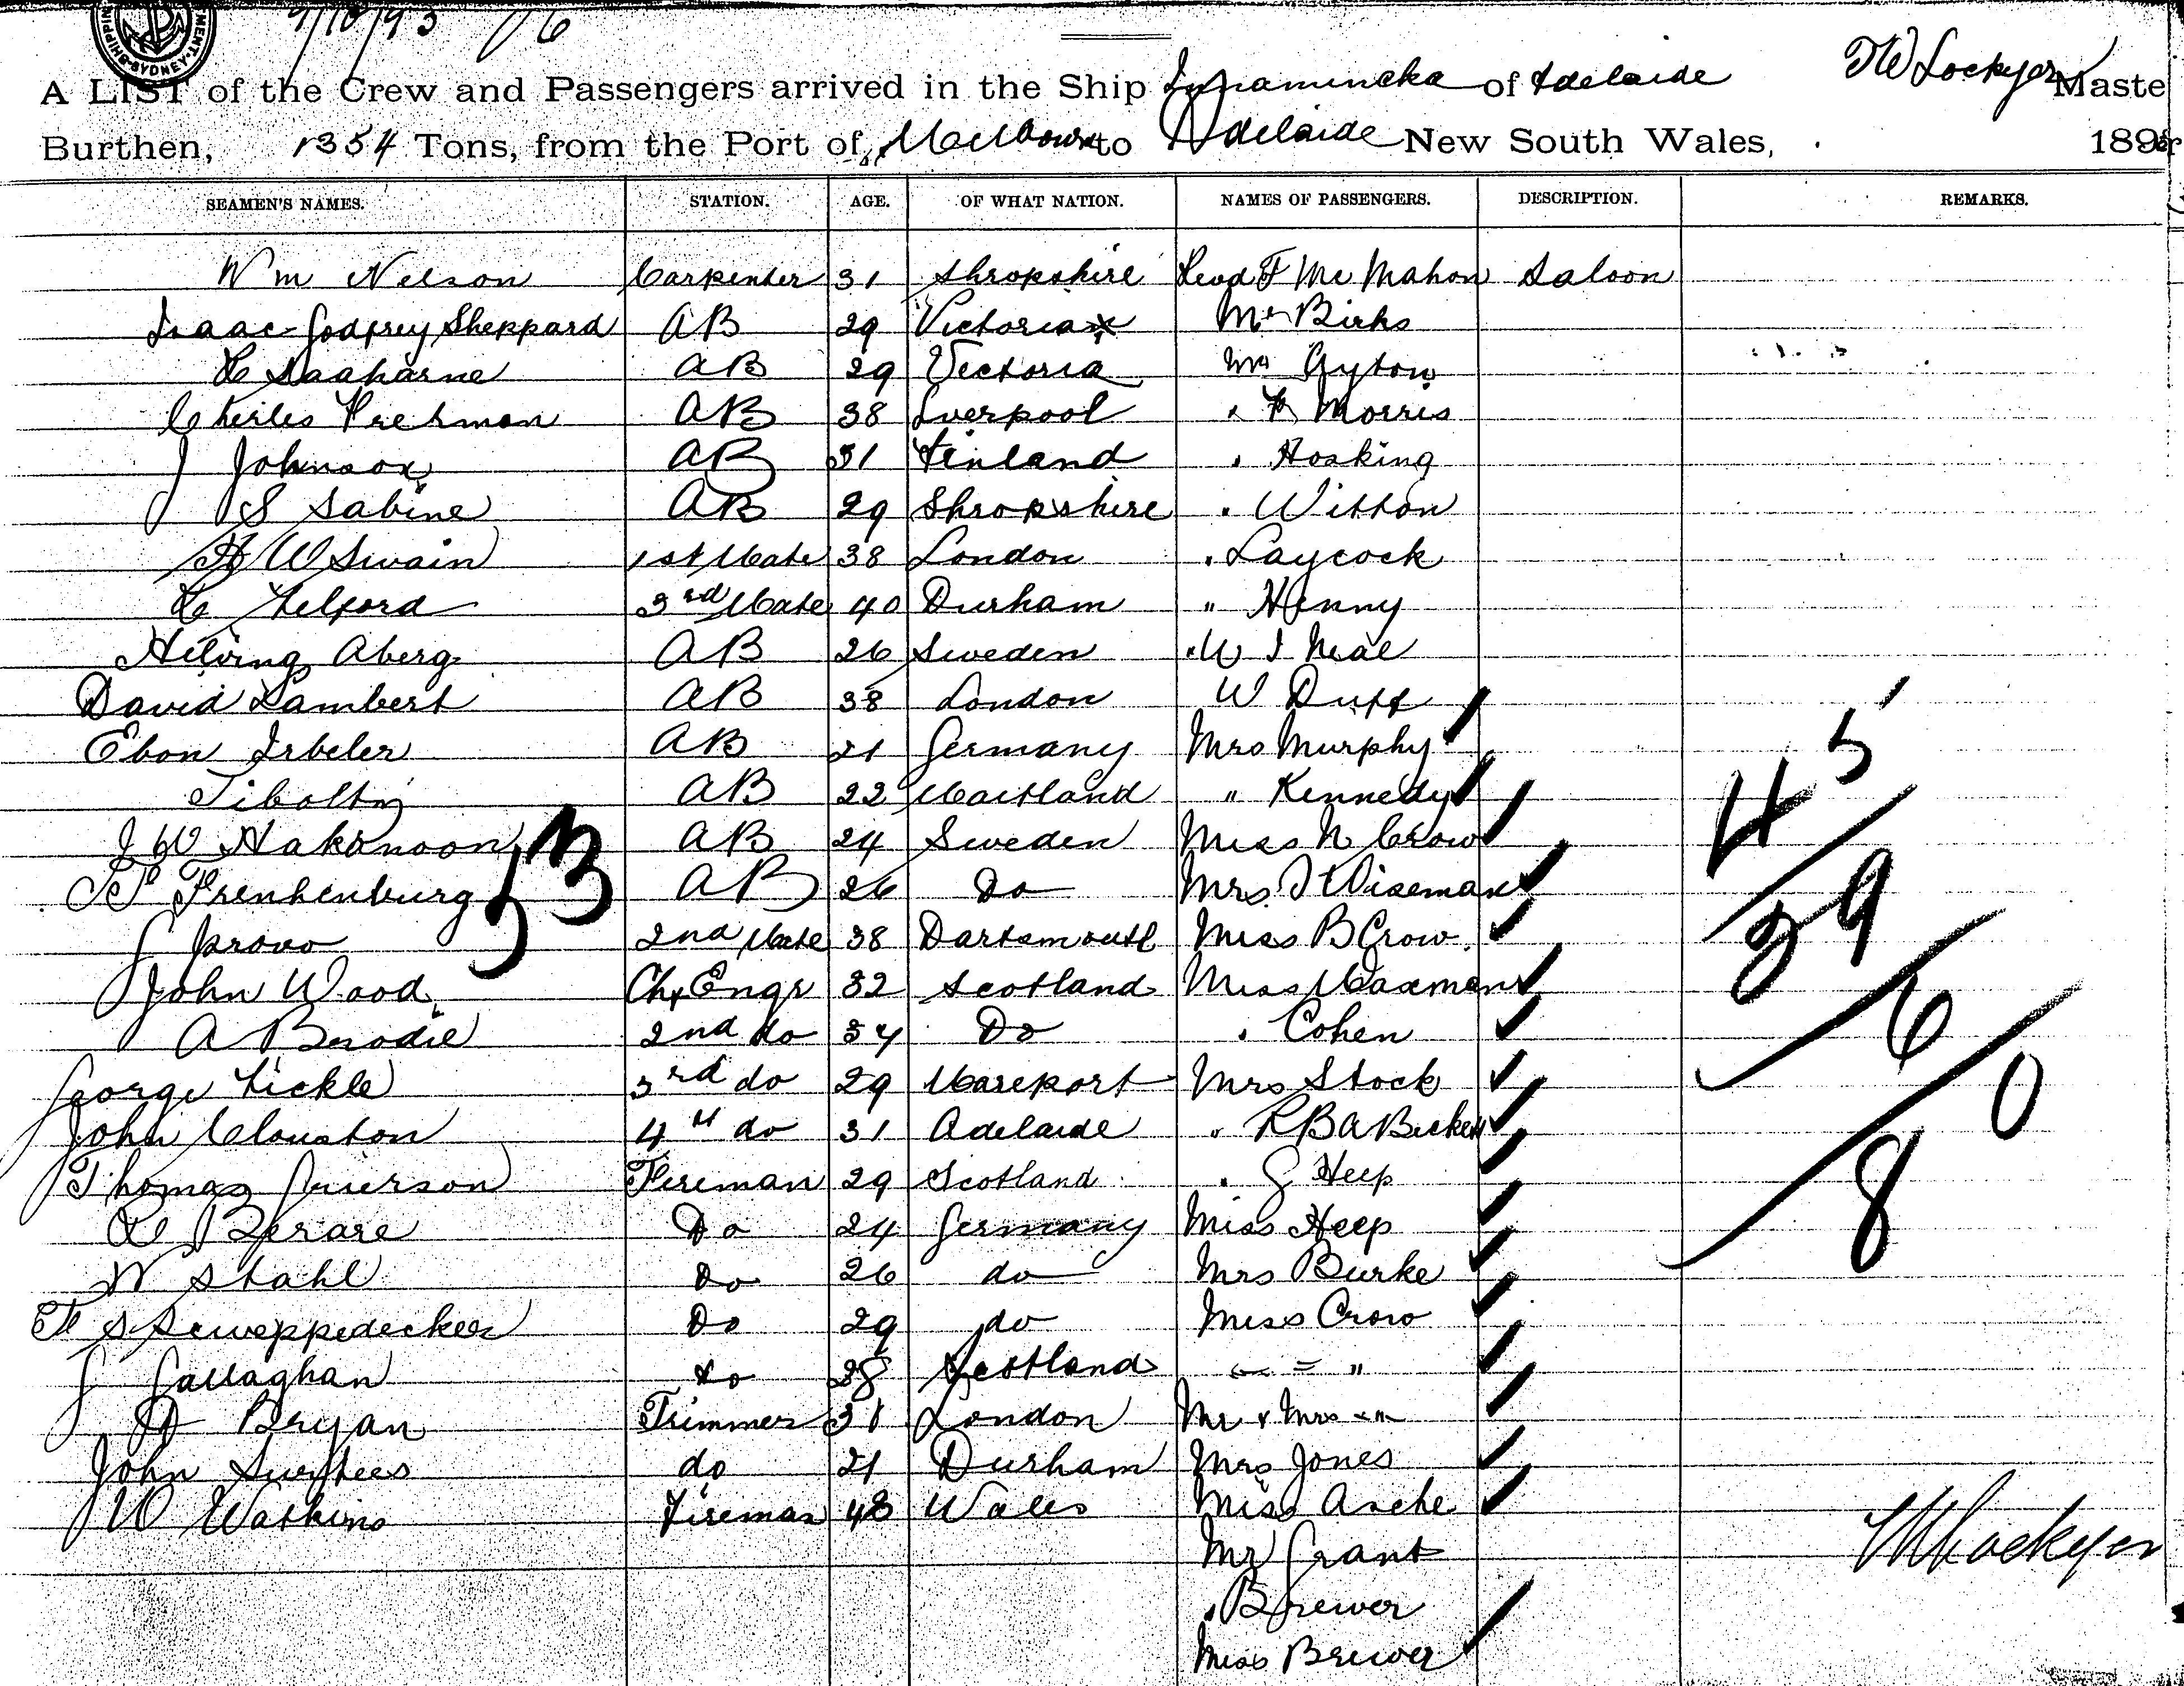 SHIPPING SYDNEY
9/10/93 / 6
A LIST of the Crew and Passengers arrived in the Ship Innamincka of Adelaide TW Lockyer Maste
Burthen, 1354 Tons, from the Port of Melbourne to Adelaide New South Wales, 189
SEAMEN'S NAMES. STATION. AGE. OF WHAT NATION. NAMES OF PASSENGERS. DESCRIPTION. REMARKS.
Wm Nelson Carpenter 31 Shropshire Revd F Mc Mahon Saloon
Isaac Godfrey Sheppard AB 29 Victoria Mr Birks
AB 29 Victoria Mr Ayton
AB 38 Liverpool " Morris
J Johnson AB 31 Finland " Hosking
S Sabine AB 29 Shropshire " Witton
H W Swain 1st Mate 38 London " Laycock
Telford 3rd Mate 40 Durham " Henny
Aberg AB 26 Sweden " W J Neal
David Lambert AB 38 London W Duff
Ebon Irbeler AB 21 Germany Mrs Murphy
AB 22 Maitland " Kennedy
J W Hakonoon AB 24 Sweden Miss N Crow
53
Frenhenburg AB 26 Do Mrs J Wiseman
J provo 2nd Mate 38 Dartsmouth Miss B Crow
John Wood Ch Engr 32 Scotland Miss Waxman
A Brodie 2nd do 34 Do " Cohen
George Tickle 3rd do 29 Mareport Mrs Stock
John Clouston 4th do 31 Adelaide " R B A Beckett
Thomas Fireman 29 Scotland " G Heep
Do 24 Germany Miss Heep
W Stahl Do 26 do Mrs Burke
Do 29 do Miss Crow
J Gallaghan do 28 Scotland " = "
Bryan Trimmer 31 London Mr & Mrs "
John Surtees do 21 Durham Mrs Jones
W Watkins Fireman 48 Wales Miss Asche
Mr Grant
" Brewer
Miss Brewer
45
39
6
80
TW Lockyer